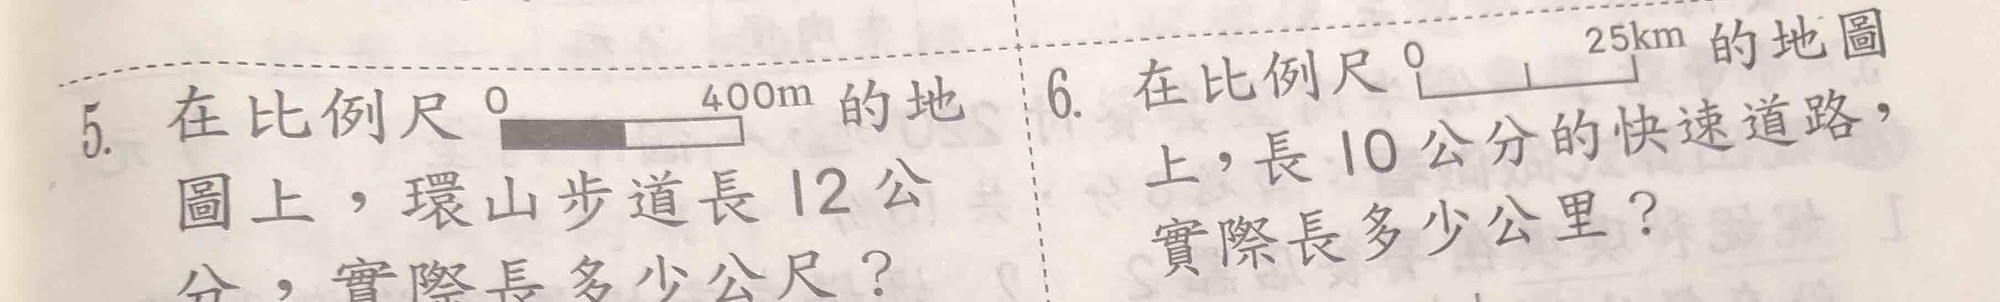 5. 在比例尺 0 400m 的地
圖上，環山步道長12公
分，實際長多少公尺？
6. 在比例尺 0 25km 的地圖
上，長10公分的快速道路，
實際長多少公里？